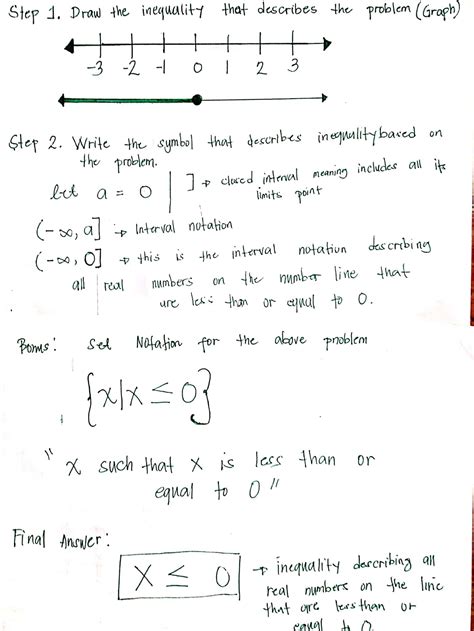 Step 1. Draw the inequality that describes the problem (Graph)
-3 -2 -1 0 1 2 3
Step 2. Write the symbol that describes inequality based on
the problem.
let a = 0 | ] → closed interval meaning includes all its
limits point
(-∞, a] → Interval notation
(-∞, 0] → this is the interval notation describing
all real numbers on the number line that
are less than or equal to 0.
Bonus: Set Notation for the above problem
{x|x ≤ 0}
" x such that x is less than or
equal to 0 "
Final Answer:
x ≤ 0 → inequality describing all
real numbers on the line
that are less than or
equal to 0.